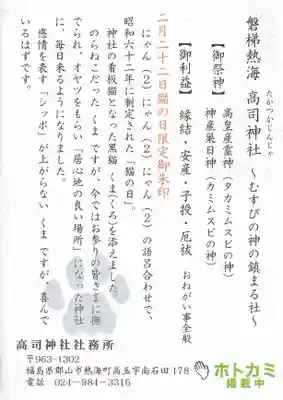 磐梯熱海 高司神社 ～むすびの神の鎮まる社～
たかつかじんじゃ
【御祭神】 高皇産霊神（タカミムスビの神）
神産巣日神（カミムスビの神）
【御利益】 縁結・安産・子授・厄祓 おねがい事全般
二月二十二日猫の日限定御朱印
にゃん（２）にゃん（２）にゃん（２）の語呂合わせで、
昭和六十二年に制定された「猫の日」。
神社の看板猫となった黒猫 くま(くろ)を添えました
のらねこだった くま ですが、今ではお参りの皆さまに撫
でられ、オヤツをもらい「居心地の良い場所」になった神社
に、毎日来るようになりました。
感情を表す「シッポ」が上がらない くま ですが、喜んで
いるはずです。
高司神社社務所
〒963-1302
福島県郡山市熱海町高玉字南石田178
電話 024-984-3316
ホトカミ
掲載中